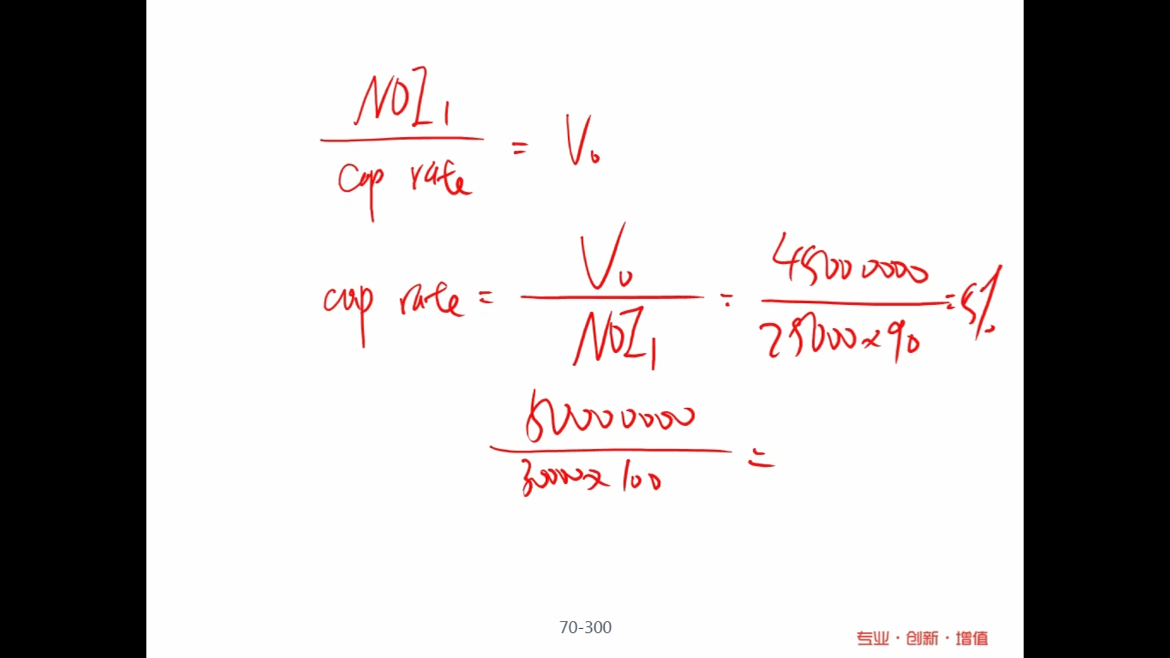 NOI₁
cap rate
= V₀
cap rate = V₀ / NOI₁ = 45000000 / 25000×90 = 5%
50000000 / 30000×100 =
70-300
专业·创新·增值